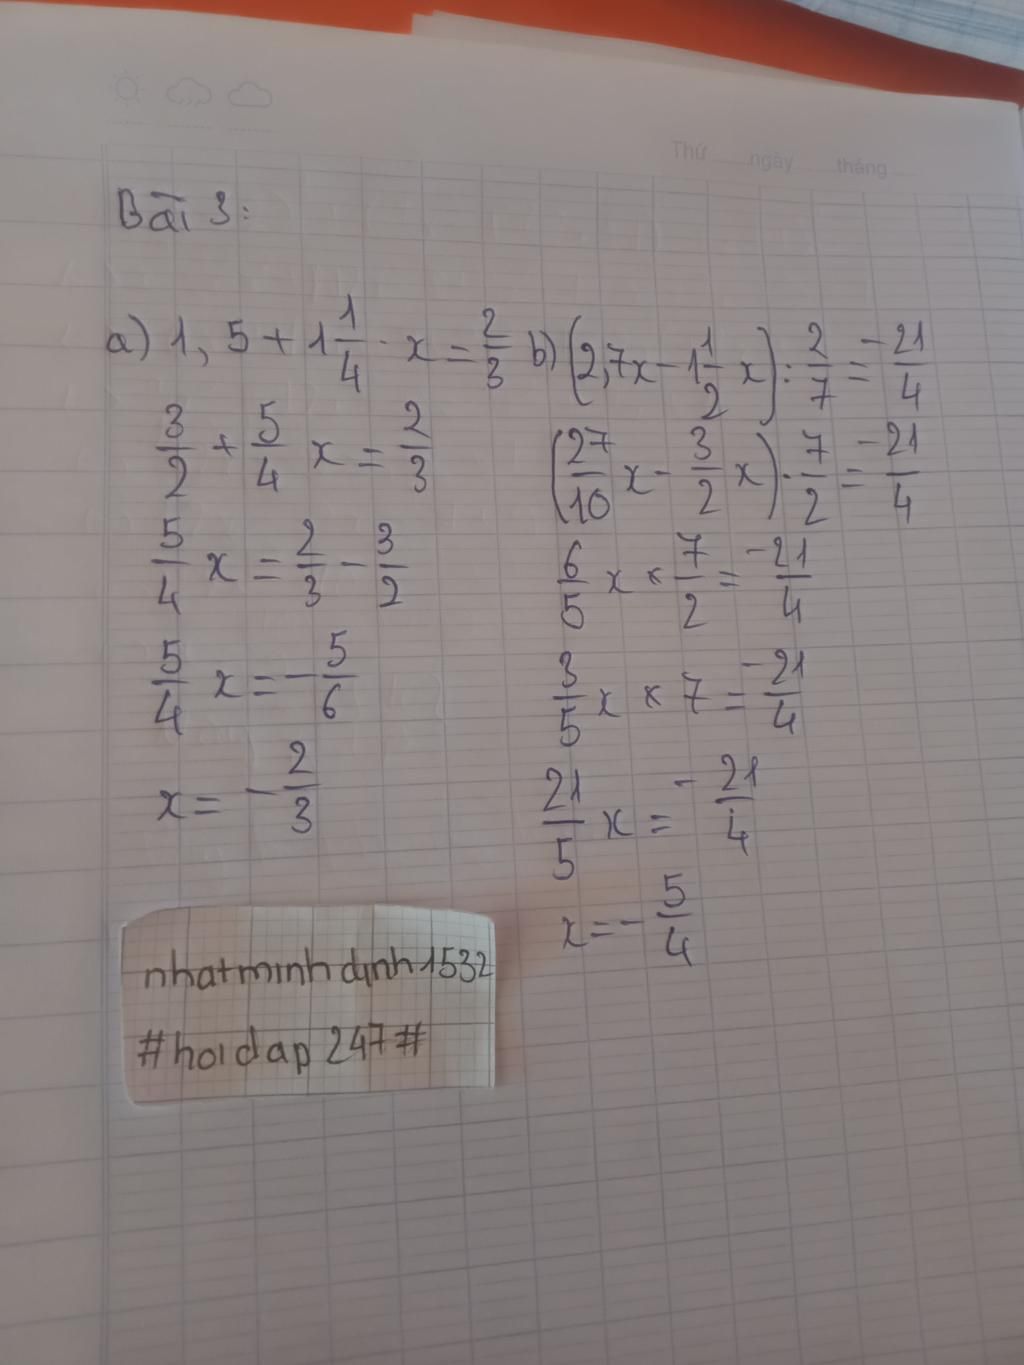 Thứ ngày tháng
Bài 3:
a) 1,5 + 1 1/4 · x = 2/3
3/2 + 5/4 x = 2/3
5/4 x = 2/3 - 3/2
5/4 x = - 5/6
x = - 2/3
b) (2,7x - 1 1/2 x) : 2/7 = -21/4
(27/10 x - 3/2 x) · 7/2 = -21/4
6/5 x × 7/2 = -21/4
3/5 x × 7 = -21/4
21/5 x = -21/4
x = - 5/4
nhatminhdinh1532
#hoidap247#